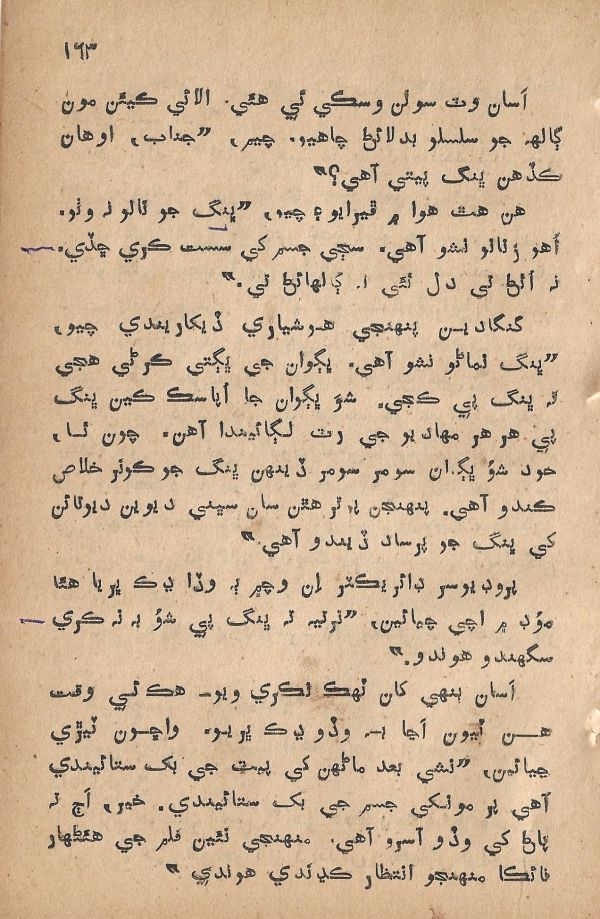 ۱۶۳
اسان وٽ سولن وسڪي ئي هئي. الائي ڪيئن مون
ڳالهه جو سلسلو بدلائڻ چاهيو. چيم, ”جناب, اوهان
ڪڏهن ڀنگ پيتي آهي؟“
هن هٿ هوا ۾ ڦيرايو ۽ چيو, ”ڀنگ جو نالو نه وٺو.
اهو زنانو نشو آهي. سڄي جسم کي سست ڪري ڇڏي.
نه اٿڻ تي دل ٿئي نه ڳالهائڻ تي.“
گنگادين پنهنجي هوشياري ڏيکاريندي چيو,
”ڀنگ نماڻو نشو آهي. ڀڳوان جي ڀڳتي ڪرڻي هجي
ته ڀنگ پي ڪجي. شو ڀڳوان جا اپاسڪ ڪين ڀنگ
پي هر هر مهاديو جي رٽ لڳائيندا آهن. چون ٿا,
خود شو ڀڳوان سومر سومر ڏينهن ڀنگ جو ڪوٺر خلاص
ڪندو آهي. پنهنجن پوتر هٿن سان سڀني ديوين ديوتائن
کي ڀنگ جو پرساد ڏيندو آهي.“
پروڊيوسر ڊائريڪٽر ان وچ ۾ ٻه وڏا ڍڪ ڀريا هئا
موڊ ۾ اچي چيائين, ”ترتيه ته ڀنگ پي شو به نه ڪري
سگهندو هوندو.“
اسان ٻنهي کان ٽهڪ نڪري ويو. هڪ ئي وقت
هن ٽيون اڃا به وڏو ڍڪ ڀريو. واڇون ٽيڙي
چيائين, ”نشي بعد ماڻهن کي پيٽ جي بک ستائيندي
آهي پر مونکي جسم جي بک ستائيندي. خير, اڄ ته
پاڻ کي وڏو آسرو آهي. منهنجي نئين فلم جي هئڻهار
نائڪا منهنجو انتظار ڪندي هوندي“